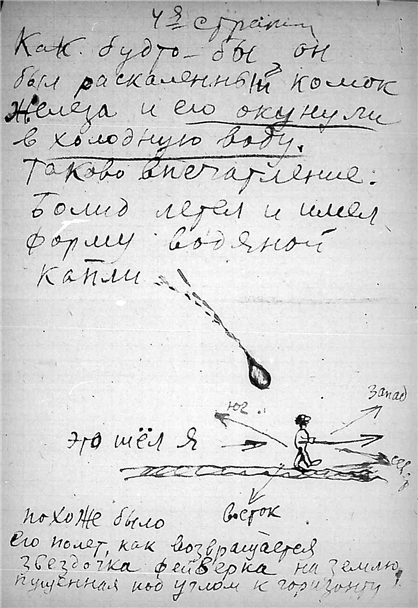 4я страниц
Как будто-бы он
был раскаленный комок
железа и его окунули
в холодную воду.
Таково впечатление:
Болид летел и имел
форму водяной
капли
запад
юг
это шёл я
север
восток
похоже было
его полет, как возвращается
звездочка фейверка на землю,
пущенная под углом к горизонту